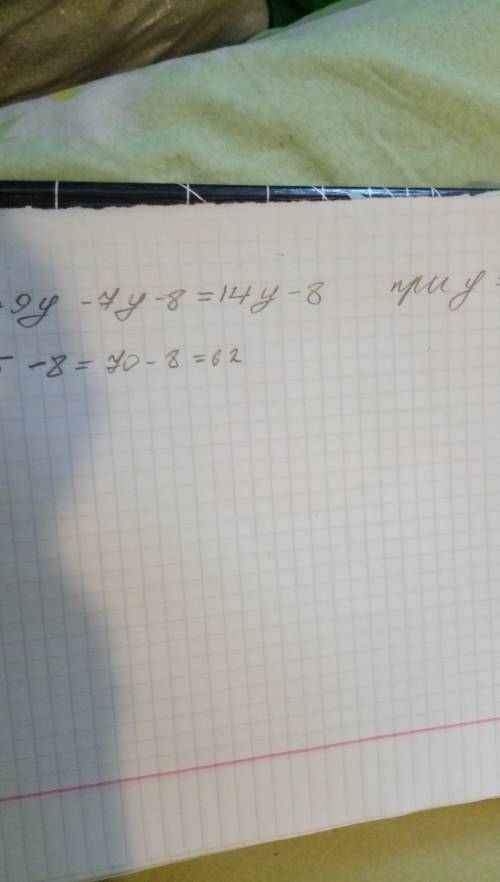 +9y - 7y - 8 = 14y - 8 при y =
5 - 8 = 70 - 8 = 62